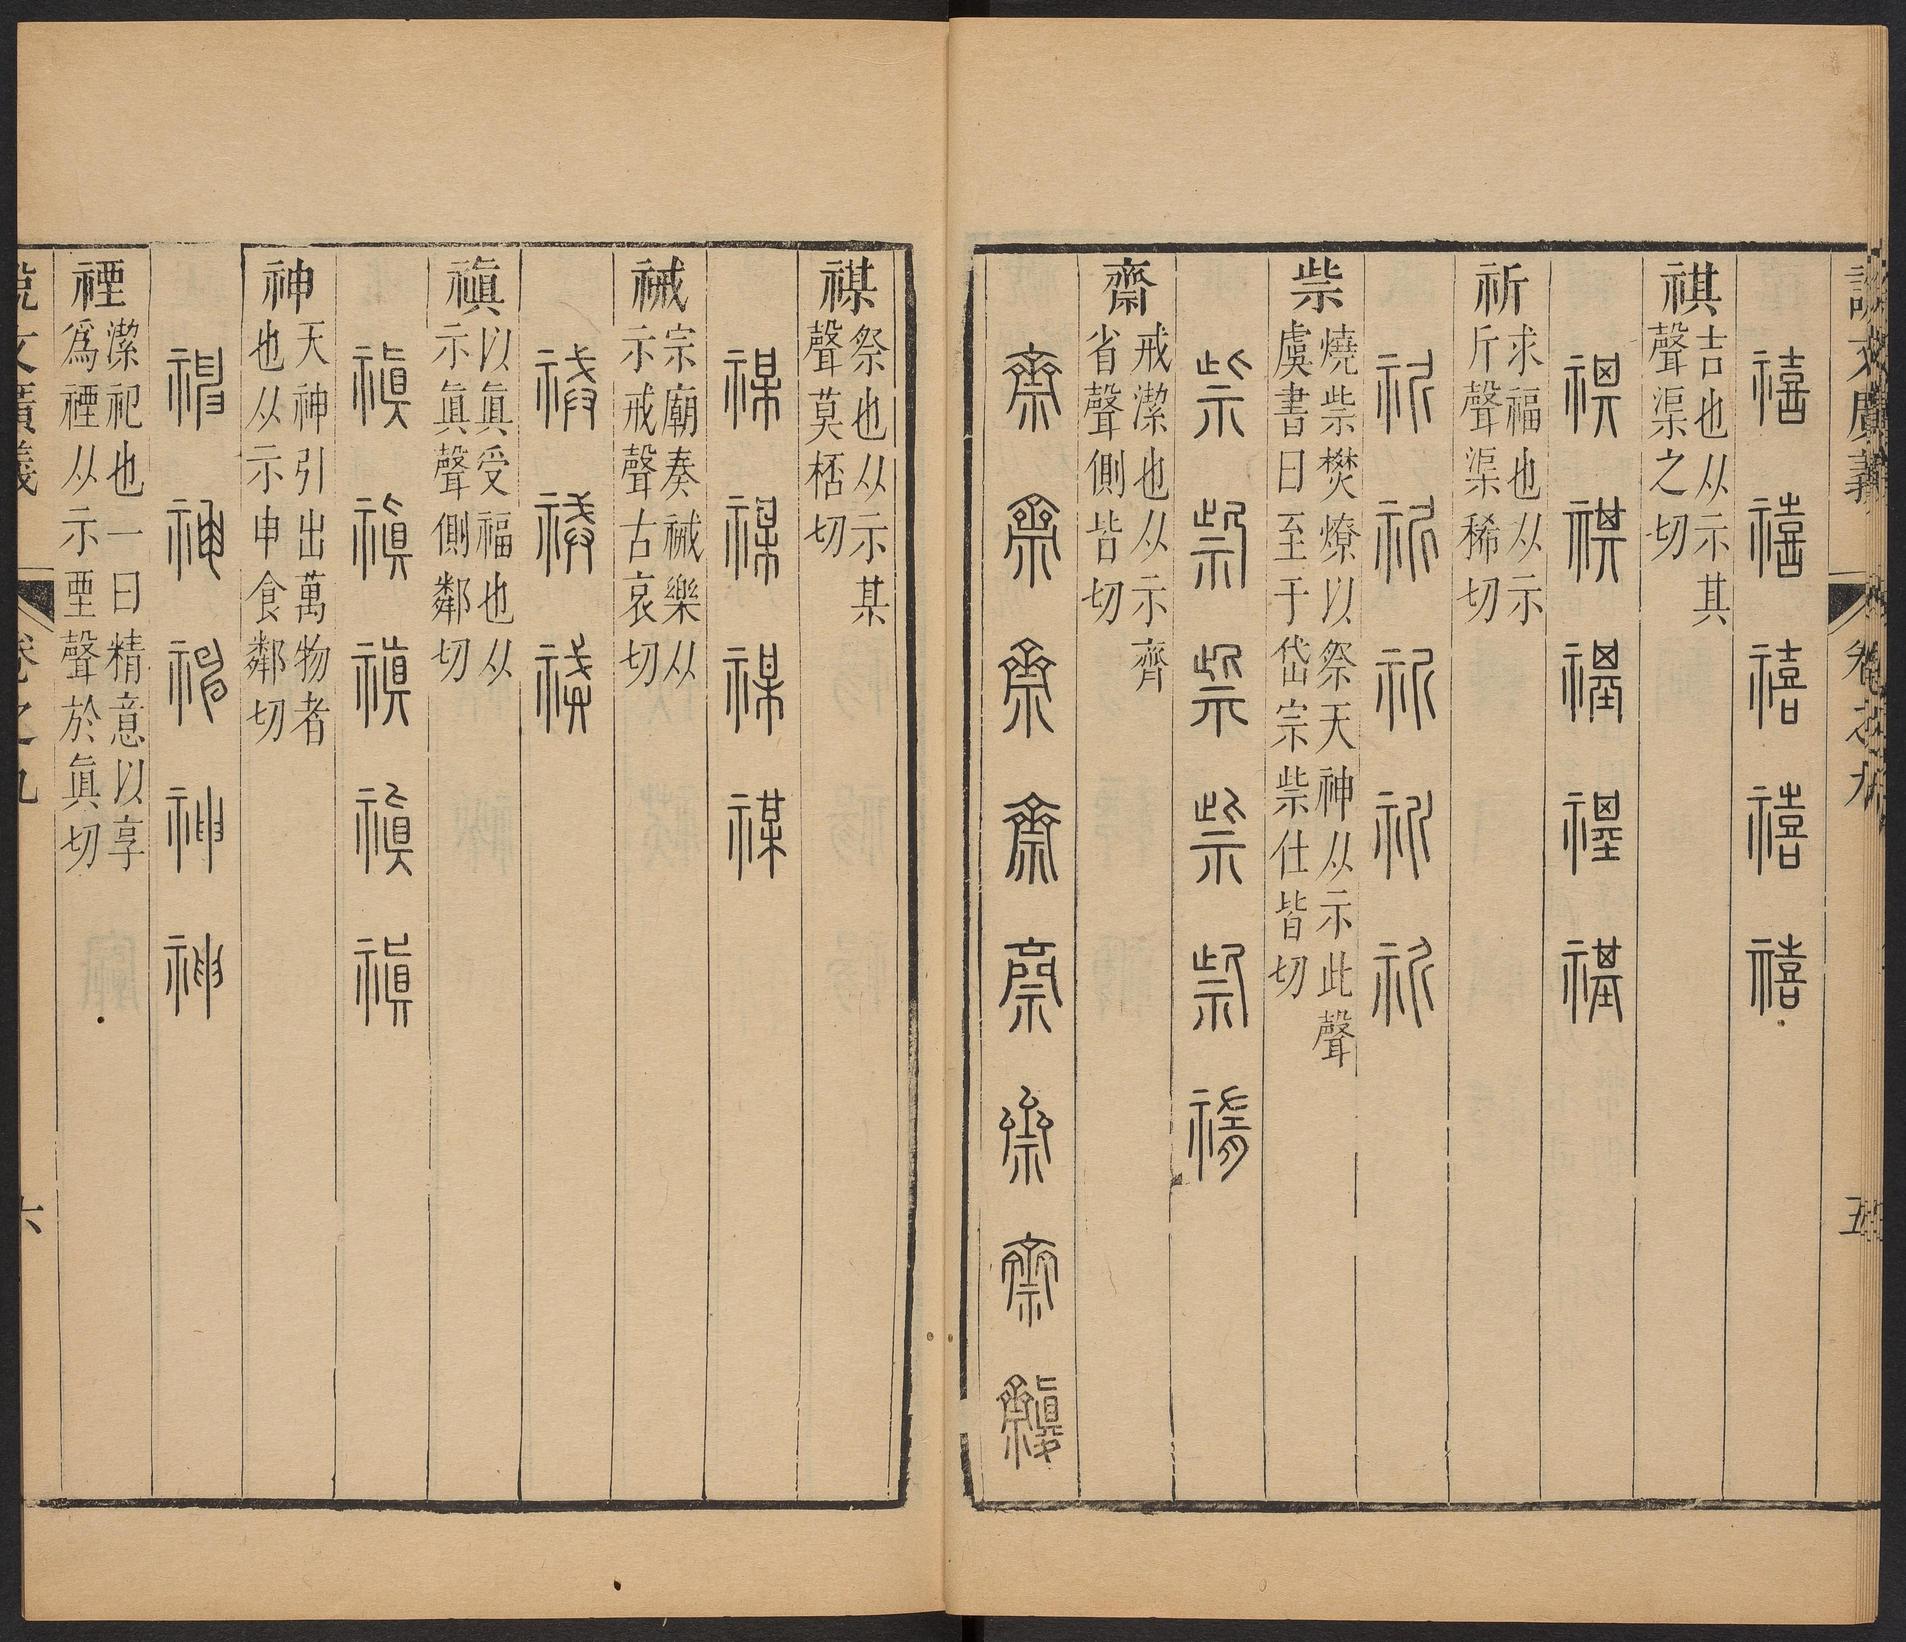 說文廣義
卷之九
五
禧 禧 禧 禧 禧
祺
吉也从示其
聲渠之切
祺 祺
祈
求福也从示
斤聲渠稀切
祈 祈 祈 祈 祈
祡
燒祡焚燎以祭天神从示此聲
虞書曰至于岱宗祡仕皆切
祡 祡 祡 祡 祡
齋
戒潔也从示齊
省聲側皆切
齋 齋 齋 齋
禖
祭也从示某
聲莫桮切
禖 禖 禖 禖
祴
宗廟奏祴樂从
示戒聲古哀切
禛
以眞受福也从
示眞聲側鄰切
禛 禛 禛 禛 禛
神
天神引出萬物者
也从示申食鄰切
神 神 神 神 神
禋
潔祀也一曰精意以享
爲禋从示垔聲於眞切
說文廣義
卷之九
六